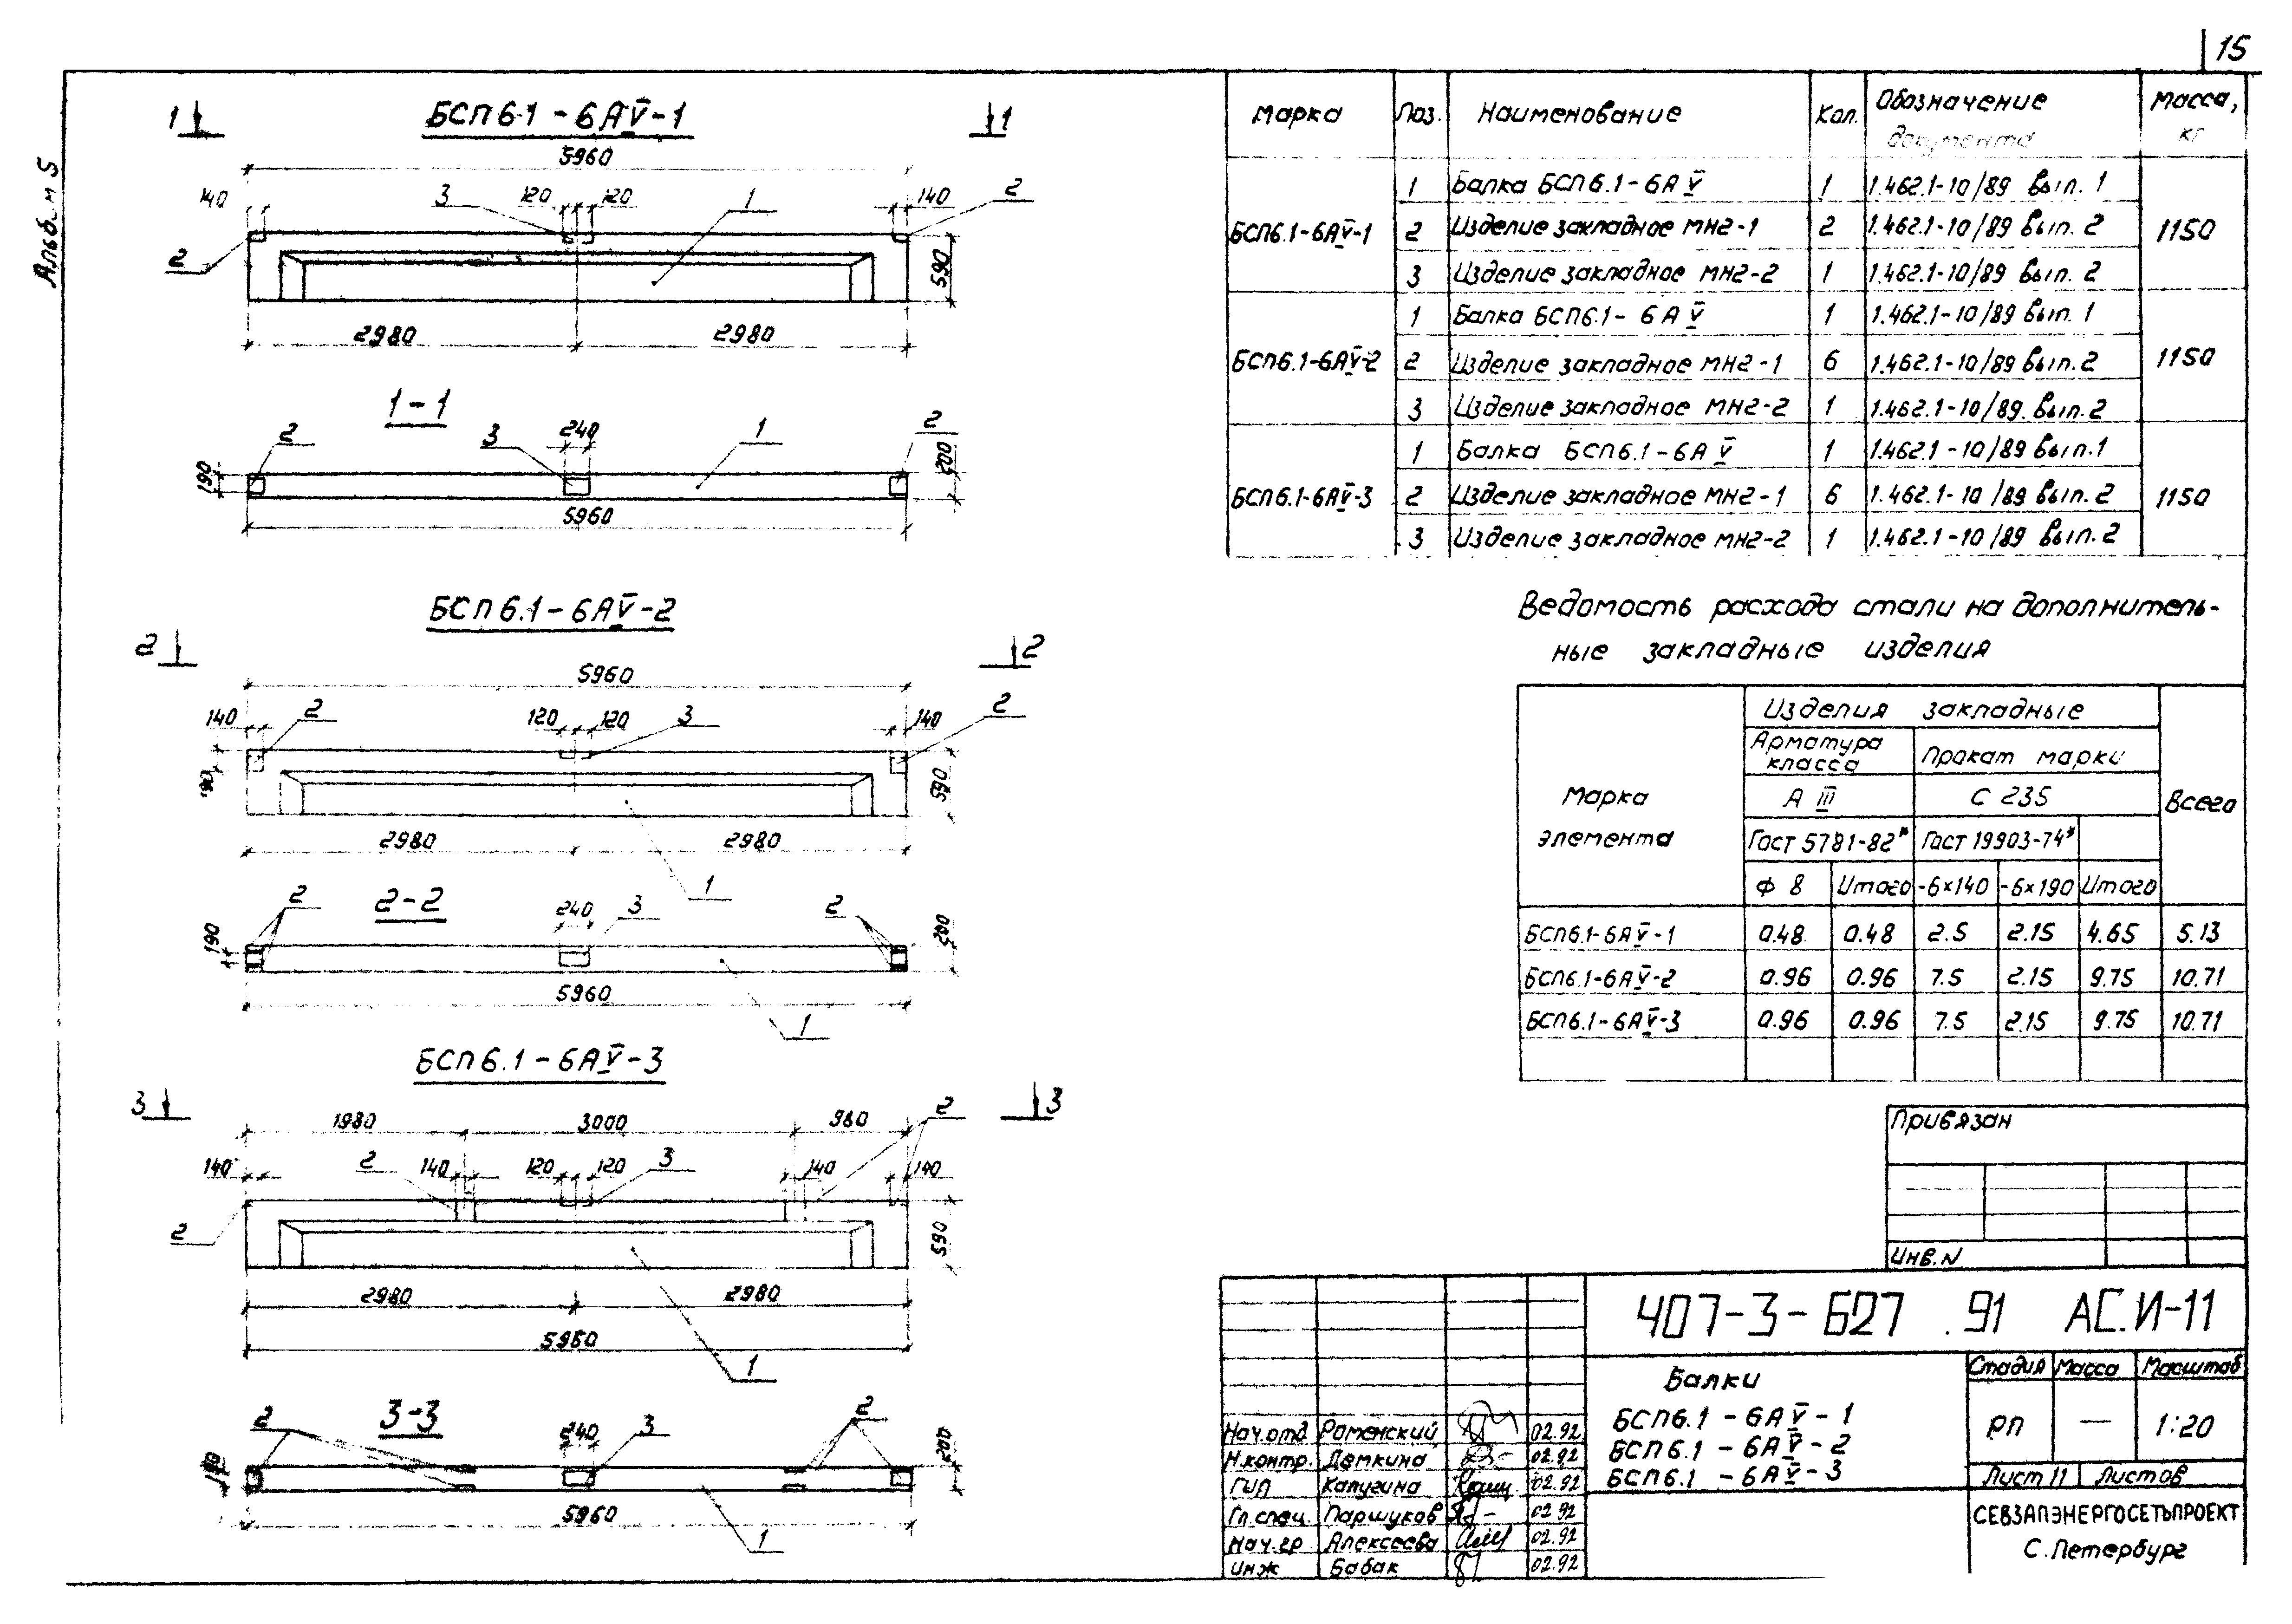 15
Альбом 5
БСП6.1-6АV-1
1 1
5960
140 3 120 120 1 140 2
2
590
2980 2980
1-1
2 3 240 1 2
190 200
5960
БСП6.1-6АV-2
2 2
5960
140 2 120 120 3 2 140
190 590
2980 2980
1
2-2
2 240 3 2
190 200
5960
1
БСП6.1-6АV-3
3 3
1980 3000 980 2
140 2 140 120 120 3 140 140
2
590
2980 2980
5960
1
3-3
2 240 3 2
190 200
5960
1
Марка Поз. Наименование Кол. Обозначение документа Масса, кг
БСП6.1-6АV-1 1150
1 Балка БСП6.1-6АV 1 1.462.1-10/89 вып. 1
2 Изделие закладное МН2-1 2 1.462.1-10/89 вып. 2
3 Изделие закладное МН2-2 1 1.462.1-10/89 вып. 2
БСП6.1-6АV-2 1150
1 Балка БСП6.1-6АV 1 1.462.1-10/89 вып. 1
2 Изделие закладное МН2-1 6 1.462.1-10/89 вып. 2
3 Изделие закладное МН2-2 1 1.462.1-10/89 вып. 2
БСП6.1-6АV-3 1150
1 Балка БСП6.1-6АV 1 1.462.1-10/89 вып. 1
2 Изделие закладное МН2-1 6 1.462.1-10/89 вып. 2
3 Изделие закладное МН2-2 1 1.462.1-10/89 вып. 2
Ведомость расхода стали на дополнитель-
ные закладные изделия
Марка элемента
Изделия закладные
Всего
Арматура класса Прокат марки
А III С 235
Гост 5781-82* Гост 19903-74*
Ф 8 Итого -6×140 -6×190 Итого
БСП6.1-6АV-1 0.48 0.48 2.5 2.15 4.65 5.13
БСП6.1-6АV-2 0.96 0.96 7.5 2.15 9.75 10.71
БСП6.1-6АV-3 0.96 0.96 7.5 2.15 9.75 10.71
Привязан
Инв.N
407-3-627.91 АС.И-11
Балки
БСП6.1-6АV-1
БСП6.1-6АV-2
БСП6.1-6АV-3
Стадия Масса Масштаб
РП — 1:20
Лист 11 Листов
СЕВЗАПЭНЕРГОСЕТЬПРОЕКТ
С.Петербург
Нач.отд Роменский 02.92
Н.контр. Демкина 02.92
ГИП Калугина 02.92
Гл.спец. Паршуков 02.92
Нач.гр Алексеева 02.92
Инж Бабак 02.92